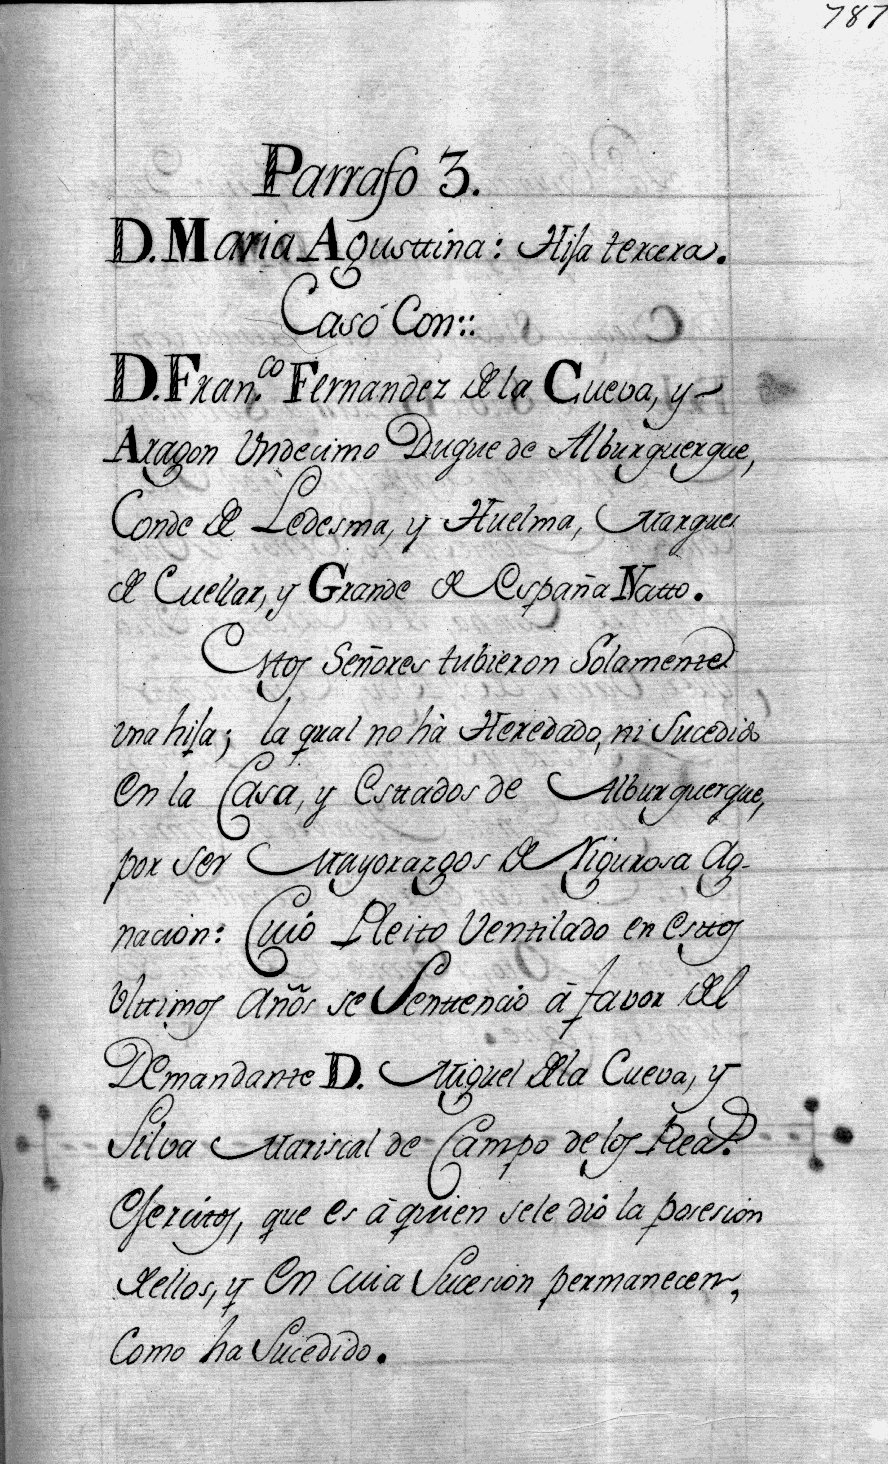 787
Parrafo 3.
D. Maria Agusttina: Hija tercera.
Casó Con::
D. Fran.co Fernandez de la Cueva, y
Aragon Undecimo Duque de Alburquerque,
Conde de Ledesma, y Huelma, Marques
de Cuellar, y Grande de España Natto.
Esttos Señores tubieron Solamente
una hija; la qual no hà Heredado, ni Sucedido
en la Casa, y Esttados de Alburquerque,
por ser Mayorazgos de Rigurosa Ag-
nacion: Cuió Pleito Ventilado en esttos
Ulttimos años se Senttenciò â favor del
Demandante D. Miguel de la Cueva, y
Silva Mariscal de Campo de los Reas.
Exercitos, que es â quien se le diò la posesion
de ellos, y en cuia Sucesion permanecen,
Como ha Sucedido.